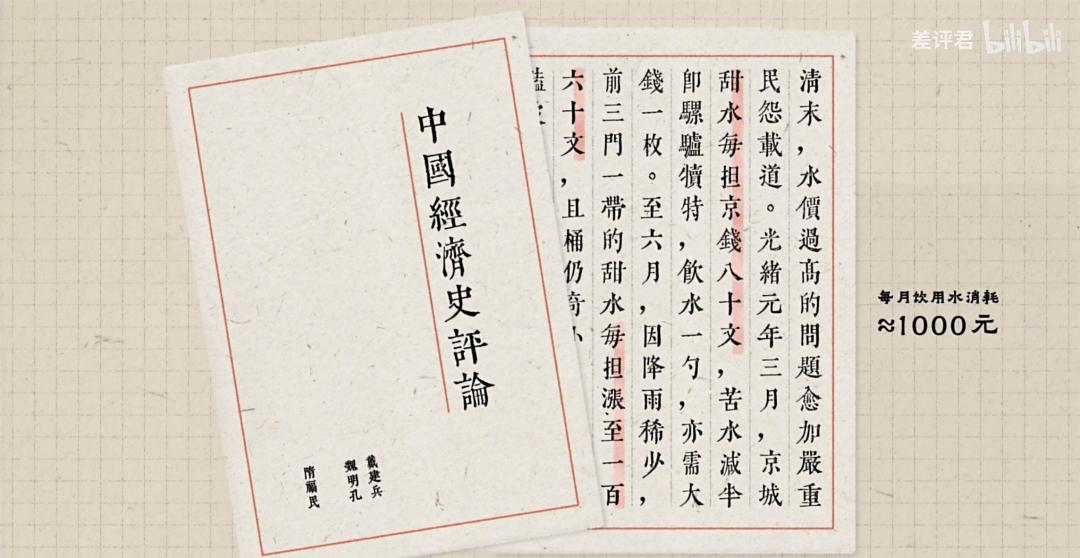 差评君 bilibili
中國經濟史評論
戴建兵
魏明孔
隋福民
清末，水價過高的問題愈加嚴重
民怨載道。光緒元年三月，京城
甜水每担京錢八十文，苦水减半
即騾驢犢特，飲水一勺，亦需大
錢一枚。至六月，因降雨稀少，
前三門一帶的甜水每担漲至一百
六十文，且桶仍奇小
每月饮用水消耗
≈1000元